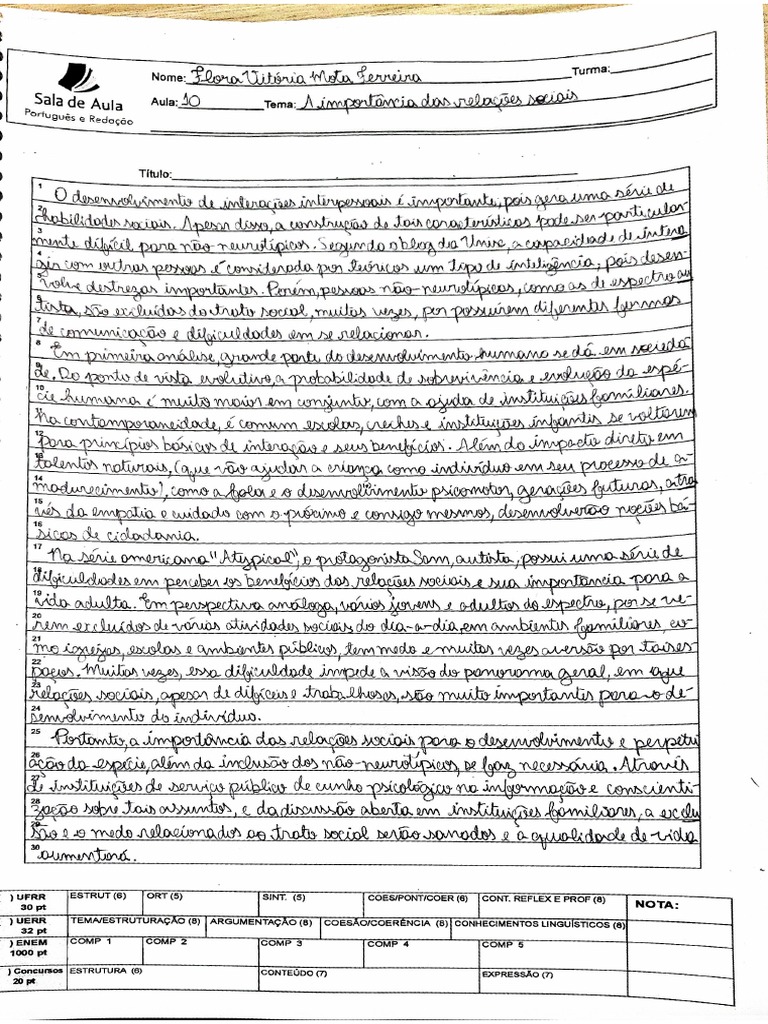 Sala de Aula
Português e Redação
Nome: Flora Vitória Mota Ferreira Turma:
Aula: 10 Tema: A importância das relações sociais
Título:
1 O desenvolvimento de interações interpessoais é importante, pois gera uma série de
2 habilidades sociais. Apesar disso, a construção de tais características pode ser particular-
3 mente difícil para não-neurotípicos. Segundo o blog da Unise, a capacidade de intera
4 gir com outras pessoas é considerada por teóricos um tipo de inteligência, pois desen-
5 volve destrezas importantes. Porém, pessoas não-neurotípicas, como as de espectro au
6 tista, são excluídas do trato social, muitas vezes, por possuírem diferentes formas
7 de comunicação e dificuldades em se relacionar.
8 Em primeira análise, grande parte do desenvolvimento humano se dá em socieda
9 de. Do ponto de vista evolutivo, a probabilidade de sobrevivência e evolução da espé-
10 cie humana é muito maior em conjunto, com a ajuda de instituições familiares.
11 Na contemporaneidade, é comum escolas, creches e instituições infantis se voltarem
12 para princípios básicos de interação e seus benefícios. Além do impacto direto em
13 talentos naturais, (que vão ajudar a criança como indivíduo em seu processo de a-
14 madurecimento), como a fala e o desenvolvimento psicomotor, gerações futuras, atra
15 vés da empatia e cuidado com o próximo e consigo mesmos, desenvolverão noções bá-
16 sicas de cidadania.
17 Na série americana "Atypical", o protagonista Sam, autista, possui uma série de
18 dificuldades em perceber os benefícios das relações sociais e sua importância para a
19 vida adulta. Em perspectiva análoga, vários jovens e adultos do espectro, por se ve-
20 rem excluídos de várias atividades sociais do dia-a-dia, em ambientes familiares, co-
21 mo igrejas, escolas e ambientes públicos, tem medo e muitas vezes aversão por tais es-
22 paços. Muitas vezes, essa dificuldade impede a visão do panorama geral, em que
23 relações sociais, apesar de difíceis e trabalhosas, são muito importantes para o de-
24 senvolvimento do indivíduo.
25 Portanto, a importância das relações sociais para o desenvolvimento e perpetu
26 ação da espécie, além da inclusão dos não-neurotípicos, se faz necessária. Através
27 de instituições de serviço público de cunho psicológico na informação e conscienti-
28 zação sobre tais assuntos, e da discussão aberta em instituições familiares, a exclu
29 são e o medo relacionados ao trato social serão sanados e a qualidade de vida
30 aumentará.
) UFRR 30 pt ESTRUT (6) ORT (5) SINT. (5) COES/PONT/COER (6) CONT. REFLEX E PROF (8) NOTA:
) UERR 32 pt TEMA/ESTRUTURAÇÃO (8) ARGUMENTAÇÃO (8) COESÃO/COERÊNCIA (8) CONHECIMENTOS LINGUÍSTICOS (8)
) ENEM 1000 pt COMP 1 COMP 2 COMP 3 COMP 4 COMP 5
) Concursos 20 pt ESTRUTURA (6) CONTEÚDO (7) EXPRESSÃO (7)